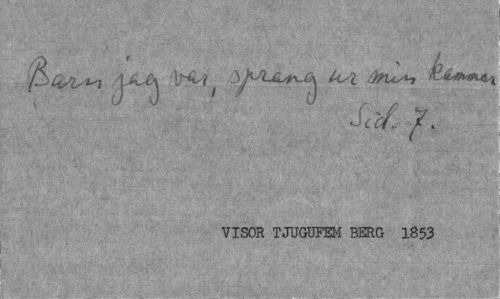 Barn jag var, sprang ur min kammar
Sid. 7.
VISOR TJUGUFEM BERG 1853